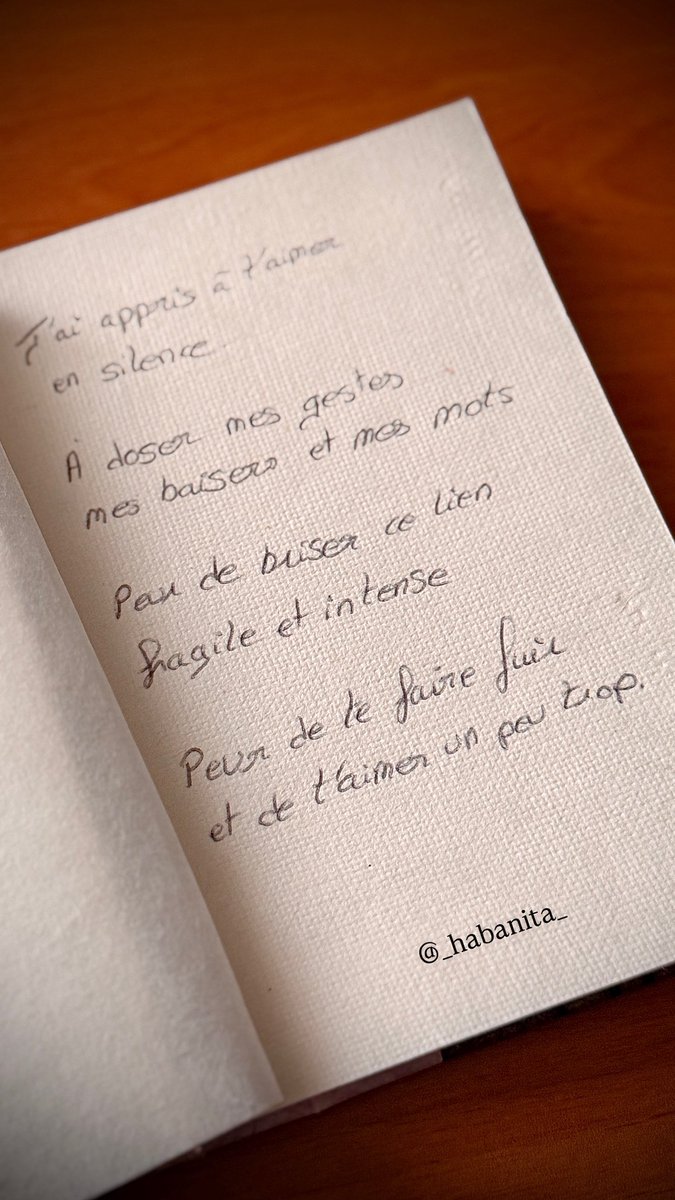 J'ai appris à t'aimer
en silence.
À doser mes gestes
mes baisers et mes mots
Peur de briser ce lien
fragile et intense
Peur de te faire fuir
et de t'aimer un peu trop.
@_habanita_